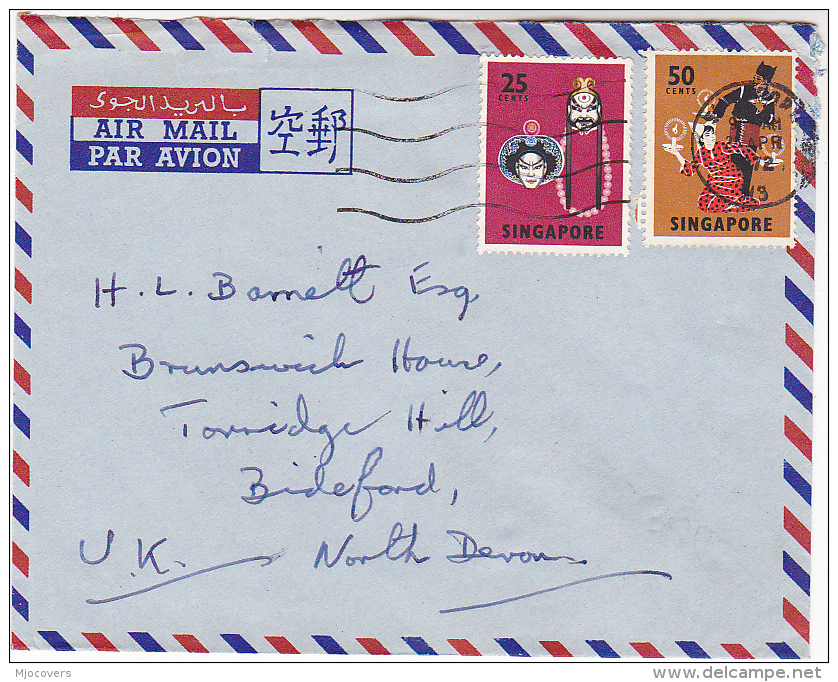 بالبريد الجوى
AIR MAIL
PAR AVION
空郵
25
CENTS
SINGAPORE
50
CENTS
SINGAPORE
APR
H. L. Barnett Esq
Brunswick House,
Torridge Hill,
Bideford,
U.K. North Devon
Mjocovers
delcampe.net